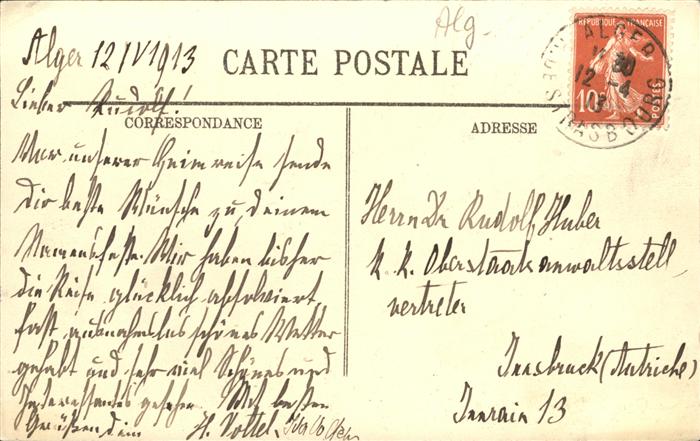 Alg.
Alger 12 IV 1913
CARTE POSTALE
Lieber Rudolf!
CORRESPONDANCE
Vor unserer Heimreise sende
Dir beste Wünsche zu deinem
Namensfeste. Wir haben bisher
die Reise glücklich absolviert,
fast ausnahmslos schönes Wetter
gehabt und sehr viel Schönes und
Interessantes gesehen. Mit besten
Grüßen dein
ADRESSE
Herrn Dr Rudolf Huber
k. k. Oberstaatsanwaltsstell
vertreter
Innsbruck (Autriche)
Innrain 13
REPUBLIQUE FRANÇAISE
10c
POSTES
ALGER
12 -4
13
STRASBOURG